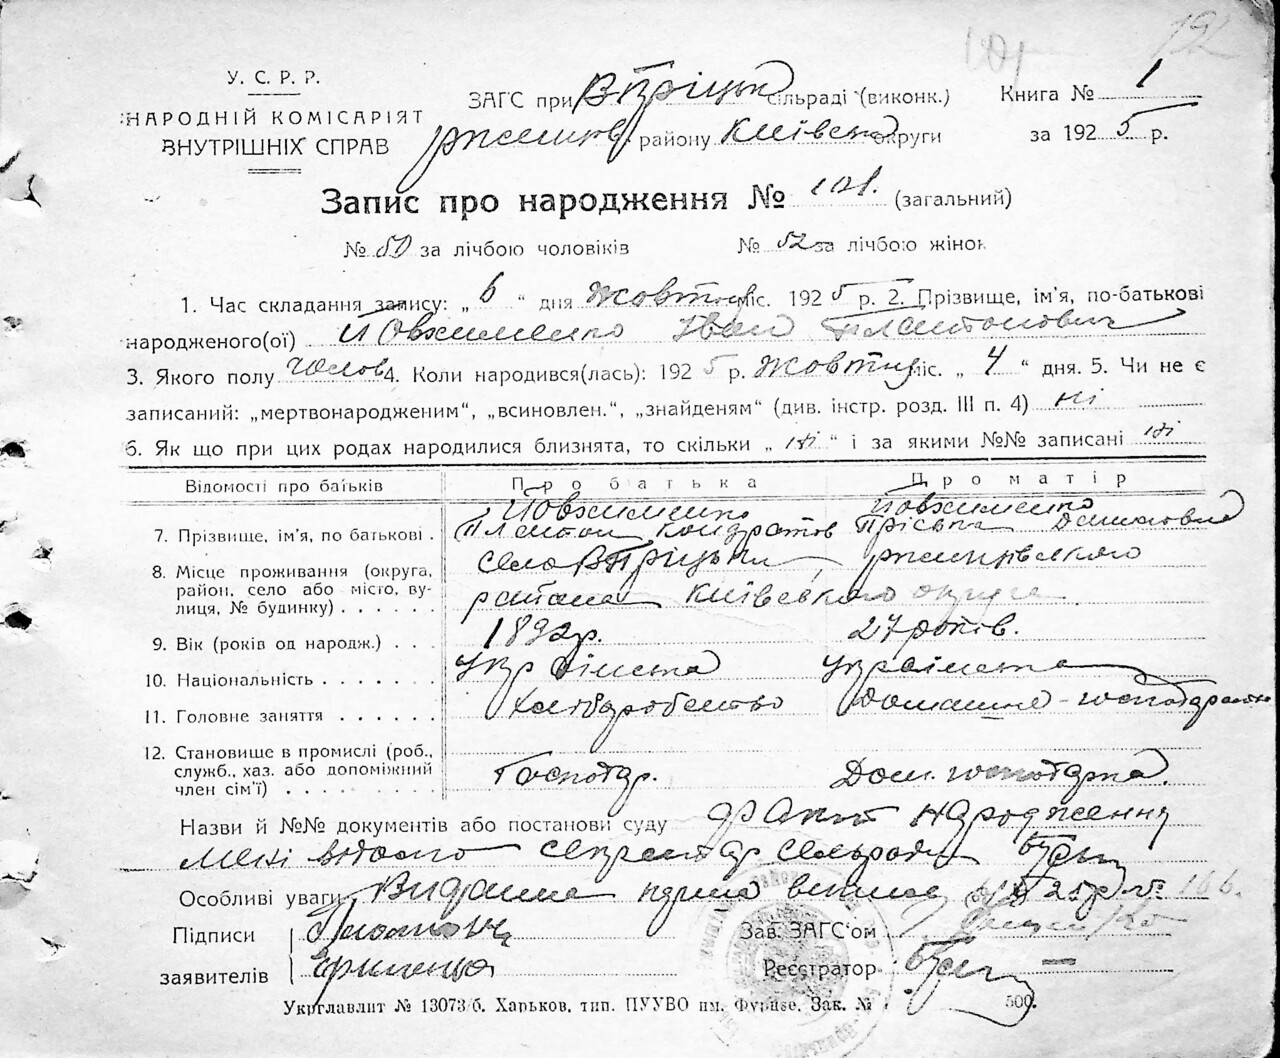 У. С. Р. Р.
НАРОДНІЙ КОМІСАРІЯТ
ВНУТРІШНІХ СПРАВ
ЗАГС при сільраді (виконк.) Книга № 1
району Київськ округи за 1925 р.
Запис про народження № 101. (загальний)
№ 50 за лічбою чоловіків № 52 за лічбою жінок
1. Час складання запису: „ 6 “ дня жовтня міс. 1925 р. 2. Прізвище, ім'я, по-батькові
народженого(ої) Йовхименко Іван Платонович
3. Якого полу чолов 4. Коли народився(лась): 1925 р. жовтня міс. „ 4 “ дня. 5. Чи не є
записаний: „мертвонародженим“, „всиновлен.“, „знайденям“ (див. інстр. розд. III п. 4) ні
6. Як що при цих родах народилися близнята, то скільки „ ні “ і за якими №№ записані ні
Відомості про батьків Про батька Про матір
7. Прізвище, ім'я, по батькові . Йовхименко Платон Кондратов Йовхименко Пріська
8. Місце проживання (округа, район, село або місто, вулиця, № будинку) . . . . . село
района Київського округа
9. Вік (років од народж.) . . . 1892 р. 27 років.
10. Національність . . . . . . . Українська Українська
11. Головне заняття . . . . . . Хліборобство Домашнє-господарство
12. Становище в промислі (роб., служб., хаз. або допоміжний член сім'ї) . . . . . . . . Господар. Дом. господарка.
Назви й №№ документів або постанови суду факт народження
мені відомо секретар сельради
Особливі уваги Видана 25 р. № 166.
Підписи Зав. ЗАГС'ом
заявителів Реєстратор
Укрглавлит № 13073/б. Харьков, тип. ПУУВО им. Фрунзе. Зак. № 500.